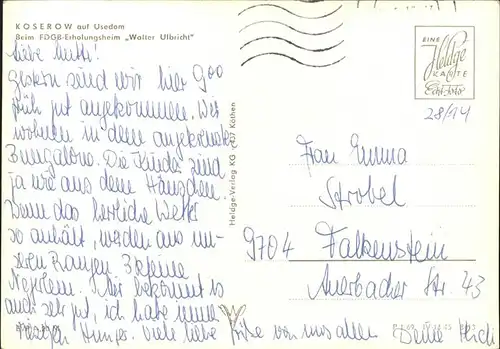 KOSEROW auf Usedom
Beim FDGB-Erholungsheim „Walter Ulbricht"
Liebe Mutti!
Gestern sind wir hier 9oo
früh gut angekommen. Wir
wohnen in dem angekreuzten
Bungalow. Die Kinder sind
ja wie aus dem Häuschen.
Wenn das herrliche Wetter
so anhält, werden aus un-
seren Rangen 3 kleine
Negerlein. Mir bekommt es
auch sehr gut, ich habe immer
Hunger. Viele liebe Grüße von uns allen Deine
Heldge-Verlag KG 437 Köthen
EINE
Heldge
KARTE
Echt Foto
28/14
Frau Emma
Strobel
9704 Falkenstein
Auerbacher Str. 43